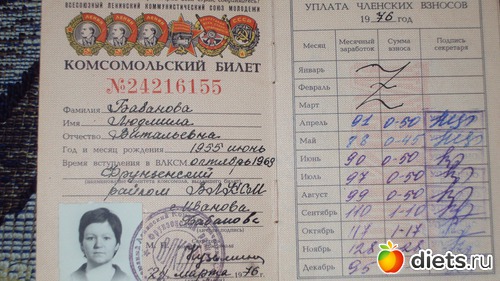 ВСЕСОЮЗНЫЙ ЛЕНИНСКИЙ КОММУНИСТИЧЕСКИЙ СОЮЗ МОЛОДЕЖИ
КОМСОМОЛЬСКИЙ БИЛЕТ
№24216155
Фамилия Баванова
Имя Людмила
Отчество Витальевна
Год и месяц рождения 1955 июнь
Время вступления в ВЛКСМ октябрь 1969
Фрунзенский
райком ВЛКСМ
г. Иванова
М. П.
марта 1976
УПЛАТА ЧЛЕНСКИХ ВЗНОСОВ
1976 год
Месяц Месячный заработок Сумма взноса Подпись секретаря
Январь
Февраль
Март
Апрель 91 0-50
Май 78 0-45
Июнь 90 0-50
Июль 97 0-50
Август 99 0-50
Сентябрь 110 1-10
Октябрь 117 1-17
Ноябрь 128
Декабрь 95
diets.ru